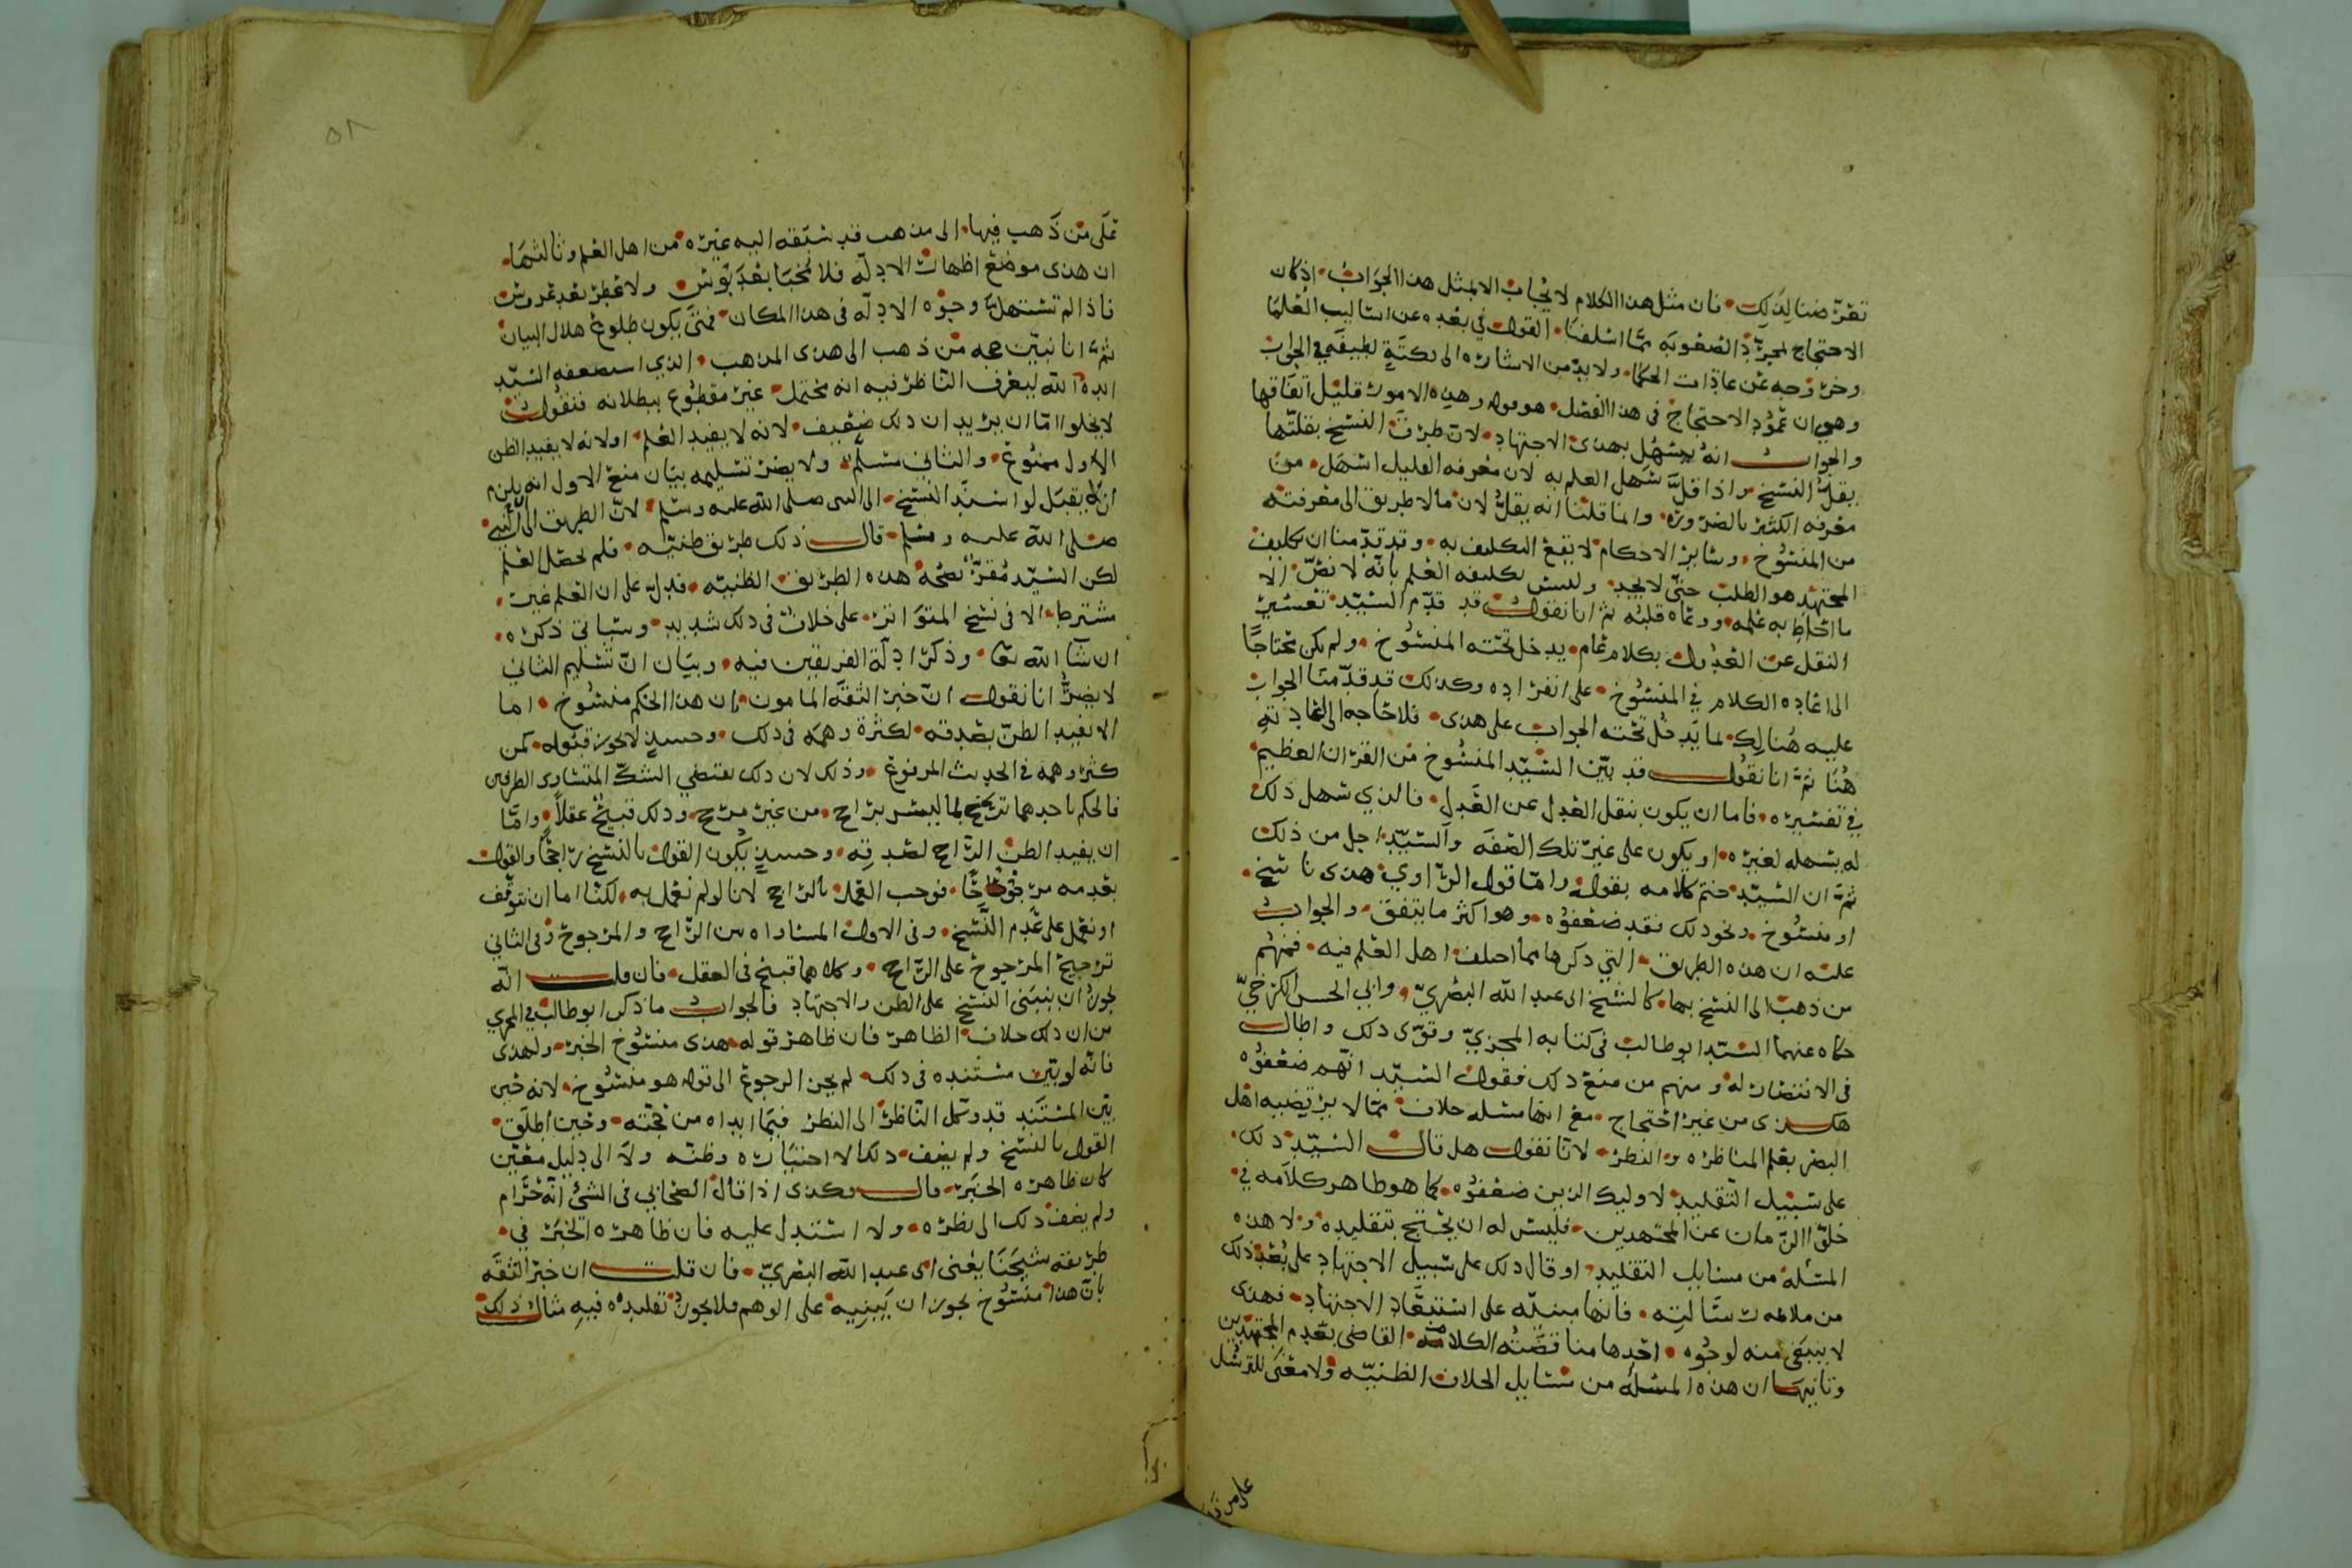 تعرضنا لذلك فان مثل هذا الكلام لا يجاب الا بمثل هذا الجواب اذ كان
الاحتجاج لمجرد الصعوبه مما اسلفنا القول في بعده عن اساليب العلما
وخروجه عن عادات الحكما ولا بد من الاشاره الى نكتة لطيفه في الجواب
وهي ان عمود الاحتجاج في هذا الفصل هو قوله وهذه الامور قليل اتفاقها
والجواب انه يسهل بهذى الاجتهاد لان طرق النسخ بقلتها
يقل النسخ واذا قل سهل العلم به لان معرفه القليل اسهل من
معرفه الكثير بالضروره وانما قلنا انه يقل لان ما لا طريق الى معرفته
من المنسوخ وسائر الاحكام لا يقع التكليف به وقد قدمنا ان تكليف
المجتهد هو الطلب حتى لا يجد وليس تكليفه العلم بانه لا نص الا
ما احاط به علمه ووعاه قلبه ثم انا نقول قد قدم السيد تعسير
النقل عن العدول بكلام عام يدخل تحته المنسوخ ولم يكن محتاجا
الى اعاده الكلام في المنسوخ على انفراده وكذلك قد قدمنا الجواب
عليه هنالك لما يدخل تحته الجواب على هذى فلا حاجه الى اعادته
هنا ثم انا نقول قد بين السيد المنسوخ من القران العظيم
في تفسيره فاما ان يكون بنقل العدل عن العدل فالذي سهل ذلك
له يسهله لغيره او يكون على غير تلك الصفه والسيد اجل من ذلك
ثم ان السيد ختم كلامه بقوله واما قول الراوي هذى ناسخ
او منسوخ ونحو ذلك فقد ضعفوه وهو اكثر ما يتفق والجواب
عليه ان هذه الطريق التي ذكرها مما اختلف اهل العلم فيه فمنهم
من ذهب الى النسخ بها كالشيخ ابى عبد الله البصري وابي الحسن الكرخي
حكاه عنهما السيد ابو طالب في كتابه المجزي وقوى ذلك واطال
في الانتصار له ومنهم من منع ذلك فقول السيد انهم ضعفوه
هكذى من غير احتجاج مع انها مسله خلاف مما لا يرتضيه اهل
البصر بعلم المناظره والنظر لانا نقول هل قال السيد ذلك
على سبيل التقليد لاوليك الذين ضعفوه كما هو ظاهر كلامه في
خلو الزمان عن المجتهدين فليس له ان يحتج بتقليده ولا هذه
المسله من مسايل التقليد او قال ذلك على سبيل الاجتهاد على بعد ذلك
من ملامه رسالته فانها مبنيه على استبعاد الاجتهاد فهذى
لا ينبغى منه لوجوه احدها مناقضته الكلامه القاضي بعدم المجتهدين
وثانيها ان هذه المسئله من مسايل الخلاف الظنيه ولا معنى للترسل
على من ذ
على من ذهب فيها الى مذهب قد سبقه اليه غيره من اهل العلم وثالثها
ان هذى موضع اظهار الادله فلا مخبا بعد بوس ولا عطر بعد عروس
فاذا لم تستهل وجوه الادله في هذا المكان فمتى يكون طلوع هلال البيان
ثم انا نبين حجه من ذهب الى هذى المذهب الذي استضعفه السيد
ايده الله ليعرف الناظر فيه انه محتمل غير مقطوع ببطلانه فنقول
لا يخلوا اما ان يريد ان ذلك ضعيف لانه لا يفيد العلم او لانه لا يفيد الظن
الاول ممنوع والثاني مسلم ولا يضر تسليمه بيان منع الاول انه يلزم
ان لا يقبل لو اسند النسخ الى النبي صلى الله عليه وسلم لان الطريق الى النبي
صلى الله عليه وسلم قال ذلك طريق ظنيه فلم يحصل العلم
لكن السيد مقر بصحه هذه الطريق الظنيه فدل على ان العلم غير
مشترط الا في نسخ المتواتر على خلاف في ذلك شديد وسياتي ذكره
ان شآ الله تعا وذكر ادلة الفريقين فيه وبيان ان تسليم الثاني
لا يضر انا نقول ان خبر الثقه المامون بان هذا الحكم منسوخ اما
الا يفيد الظن بصدقه لكثرة وهمه في ذلك وحسد لا يجوز قبوله كمن
كثر وهمه في الحديث المرفوع وذلك لان ذلك يقتضي الشك المتساوى الطرفين
فالحكم باحدهما ترجيح لما ليس براجح من غير مرجح وذلك قبيح عقلا واما
ان يفيد الظن الراجح لصدقه وحسد يكون القول بالنسخ راجحا والقول
بعدمه مرجوحا فوجب العمل بالراجح لانا لو لم نعمل به لكنا اما ان نتوقف
او نعمل على عدم النسخ وفي الاول المساواه بين الراجح والمرجوح وفي الثاني
ترجيح المرجوح على الراجح وكلاهما قبيح في العقل فان قلت انه
يجوز ان ينبنى النسخ على الظن والاجتهاد فالجواب ما ذكره ابو طالب في المجزي
من ان ذلك خلاف الظاهر فان ظاهر قوله هذى منسوخ الخبر ولهذى
فانه لو بين مستنده في ذلك لم يجز الرجوع الى قوله هو منسوخ لانه حين
بين المستند قد وكل الناظر الى النظر فيما ابداه من حجته وحين اطلق
القول بالنسخ ولم يضف ذلك الا اختياره وظنه ولا الى دليل معين
كان ظاهره الخبر قال وهكذى اذا قال الصحابي في الشي انه حرام
ولم يضف ذلك الى نظره ولا استدل عليه فان ظاهره الخبر في
طريقه شيخنا يعنى ابى عبد الله البصري فان قلت ان خبر الثقه
بان هذا منسوخ يجوز ان يبنيه على الوهم فلا يجوز تقليده فيه مثال ذلك
٥٨